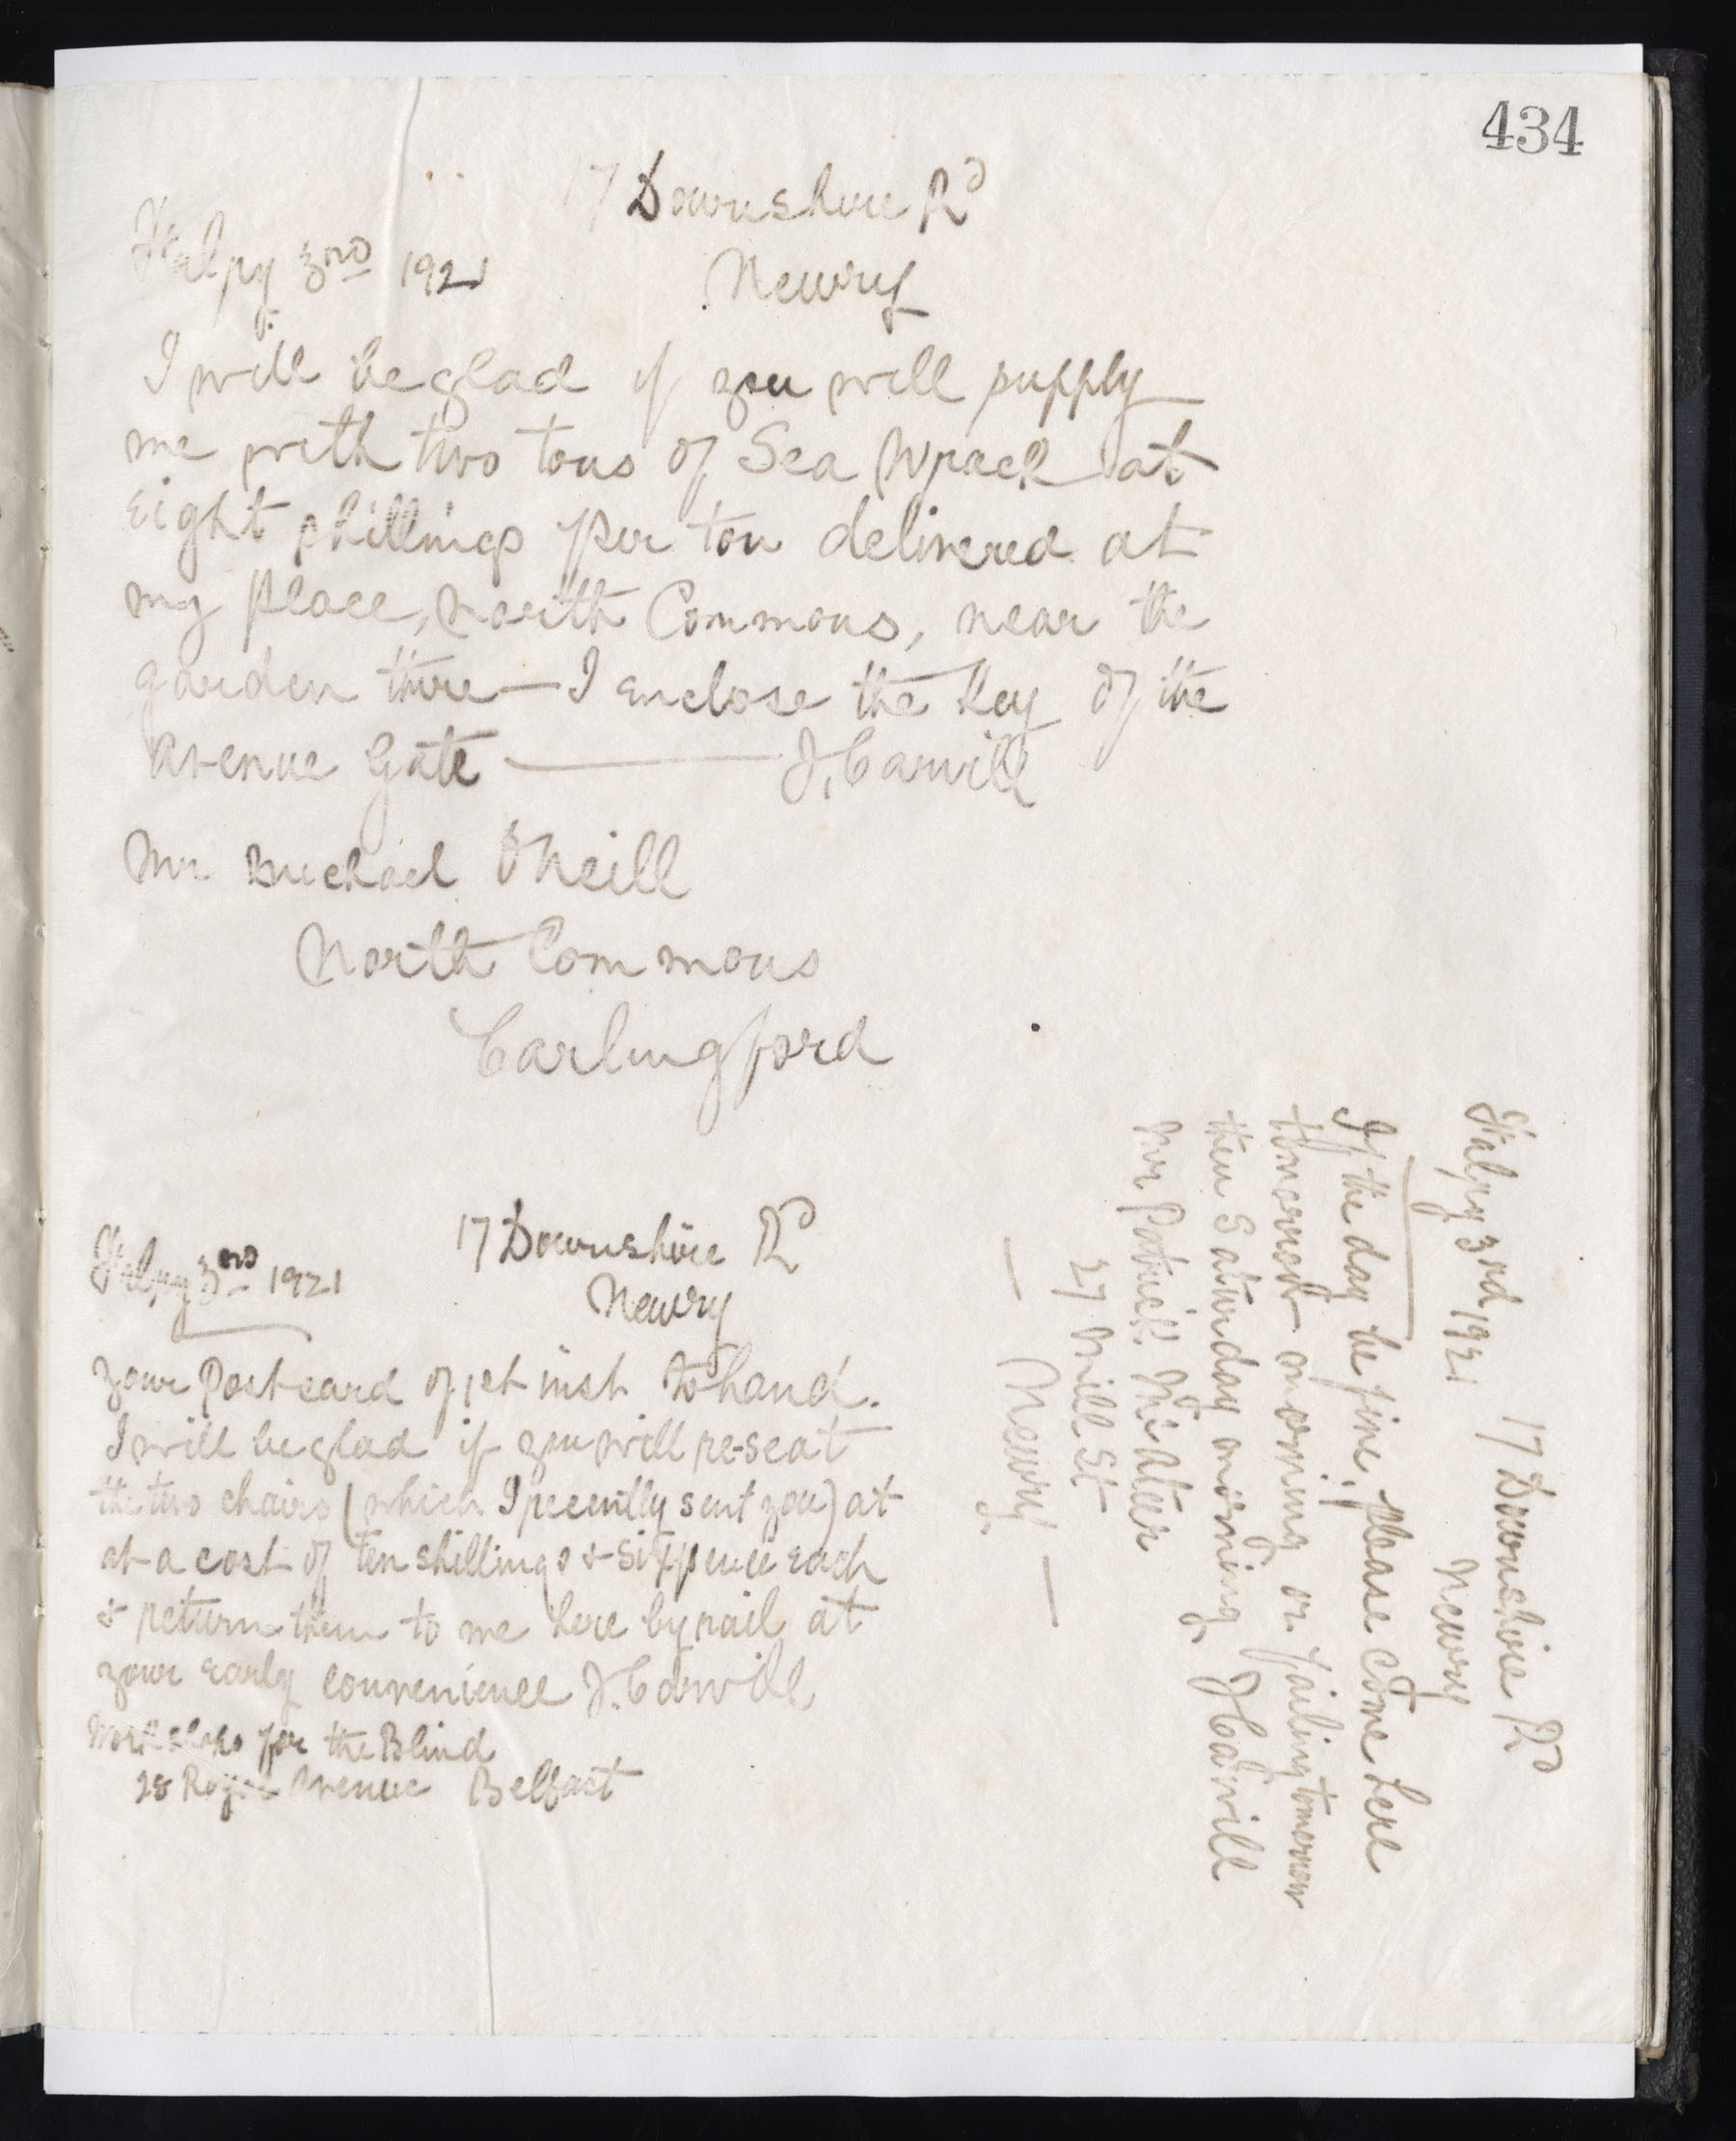 434
17 Downshire Rd
Feby 3rd 1921
Newry
I will be glad if you will supply
me with two tons of Sea Wrack at
eight shillings per ton delivered at
my place, North Commons, near the
garden there — I enclose the key of the
avenue gate — J, Carvill
Mr Michael O'Neill
North Commons
Carlingford
17 Downshire Rd
Feby 3rd 1921
Newry
your Postcard of 1st inst to hand.
I will be glad if you will re-seat
the two chairs (which I recently sent you) at
at a cost of ten shillings & sixpence each
& return them to me here by rail at
your early convenience J. Carvill
Workshops for the Blind
28 Royal Avenue Belfast
17 Downshire Rd
Feby 3rd 1921
Newry
If the day be fine, please come here
tomorrow morning or failing tomorrow
then Saturday morning, J Carvill
Mr Patrick McAteer
27 Mill St
— Newry. —